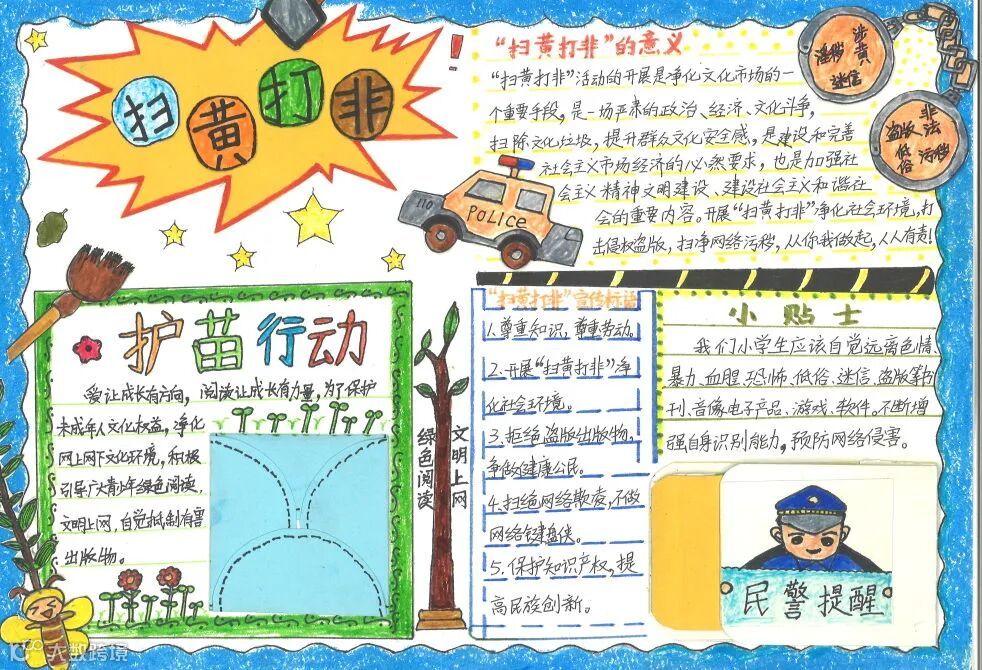 扫黄打非!
“扫黄打非”的意义
“扫黄打非”活动的开展是净化文化市场的一
个重要手段,是一场严肃的政治、经济、文化斗争,
扫除文化垃圾,提升群众文化安全感,是建设和完善
社会主义市场经济的必然要求,也是加强社
会主义精神文明建设、建设社会主义和谐社
会的重要内容。开展“扫黄打非”净化社会环境,打
击侵权盗版,扫净网络污秽,从你我做起,人人有责!
淫秽
涉黄
迷信
盗版
非法
低俗
污秽
110
POLICE
护苗行动
爱让成长有方向,阅读让成长有力量,为了保护
未成年人文化权益,净化
网上网下文化环境,积极
引导广大青少年绿色阅读,
文明上网,自觉抵制有害
出版物。
绿色阅读
文明上网
“扫黄打非”宣传标语
1.尊重知识,尊重劳动。
2.开展“扫黄打非”净
化社会环境。
3.拒绝盗版出版物,
争做健康公民。
4.扫绝网络欺凌,不做
网络键盘侠。
5.保护知识产权,提
高民族创新。
小贴士
我们小学生应该自觉远离色情、
暴力、血腥、恐怖、低俗、迷信、盗版等书
刊、音像、电子产品、游戏、软件。不断增
强自身识别能力,预防网络侵害。
民警提醒
大数跨境